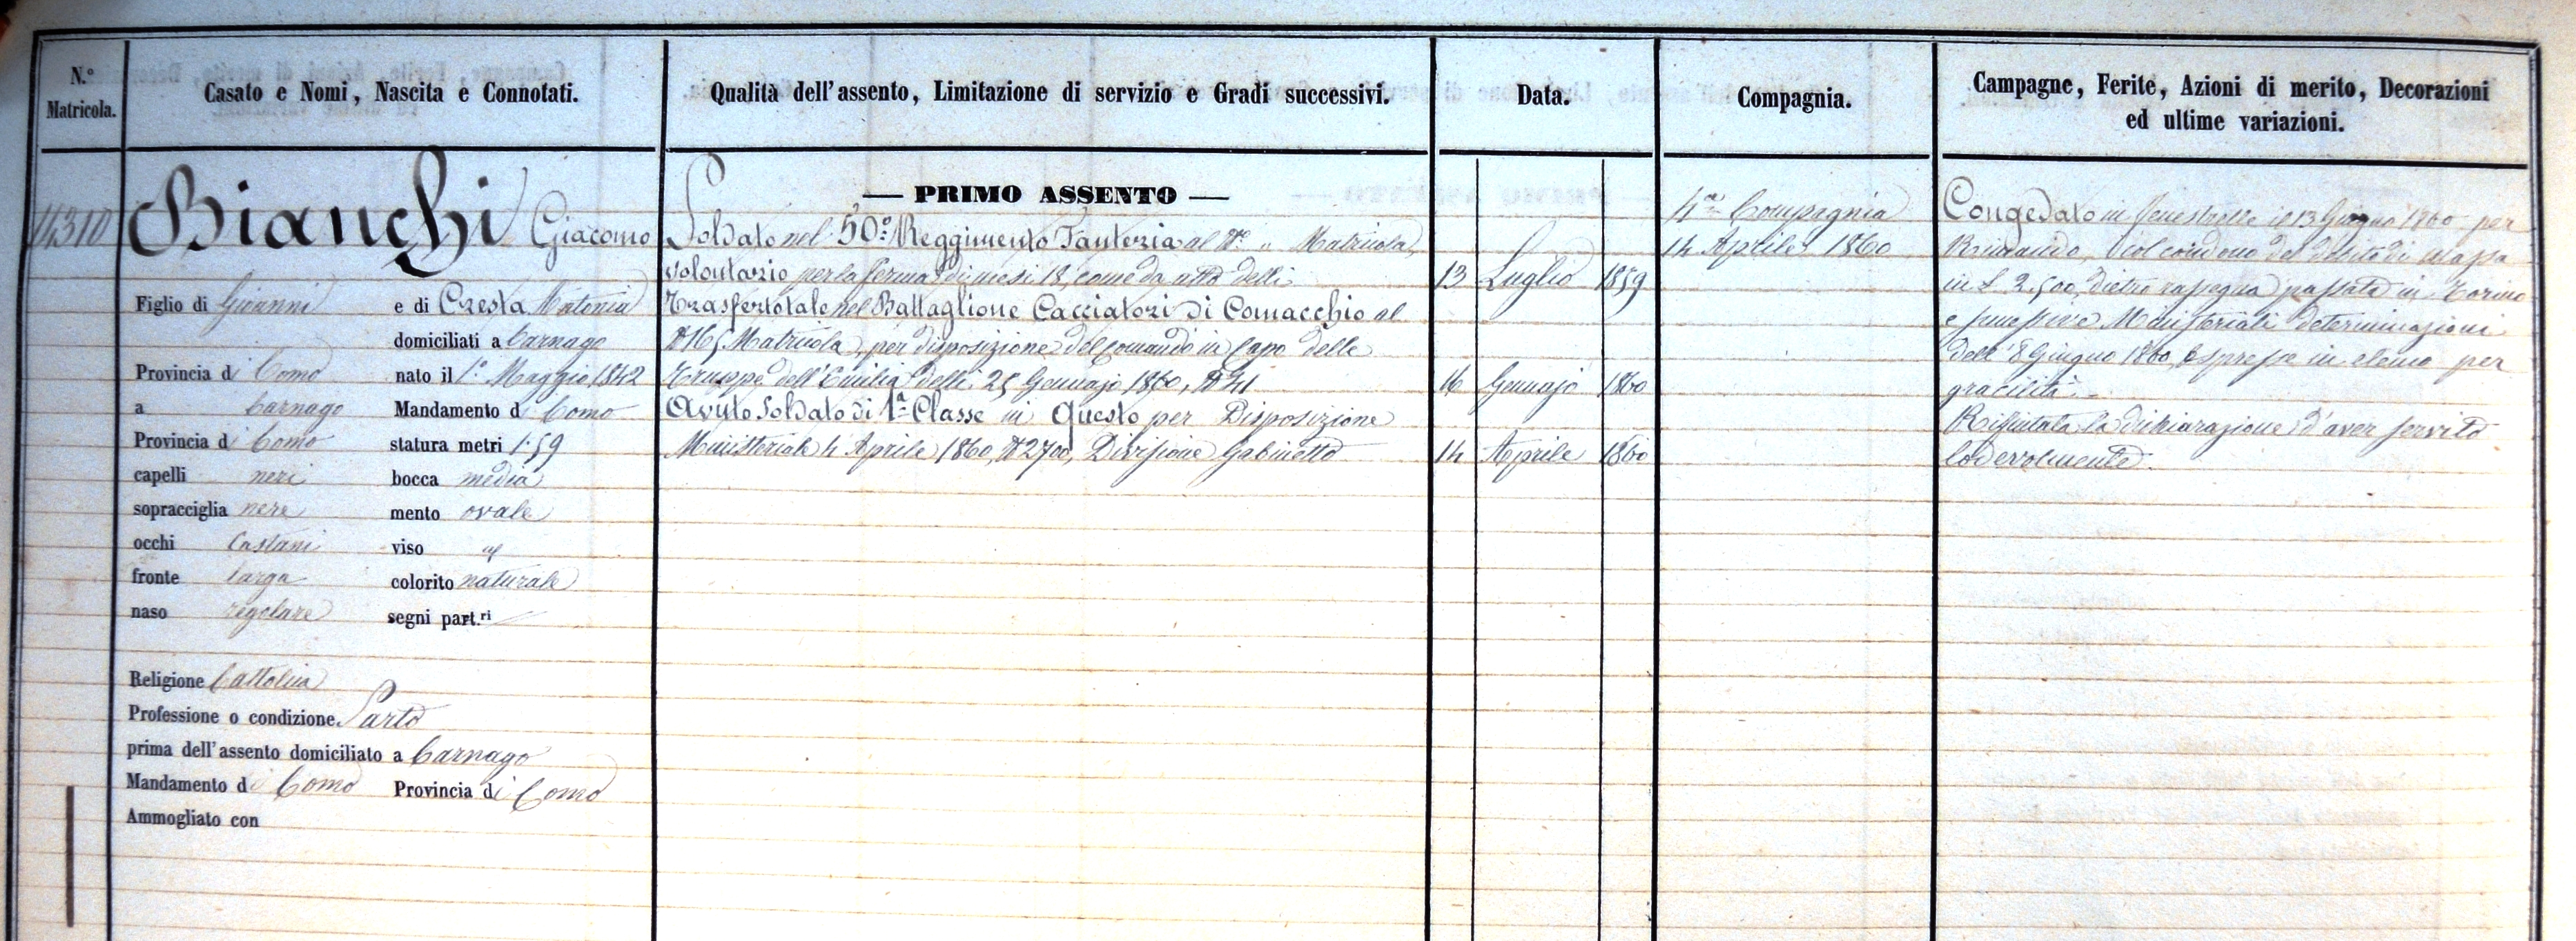 N.° Matricola.
Casato e Nomi, Nascita e Connotati.
Qualità dell'assento, Limitazione di servizio e Gradi successivi.
Data.
Compagnia.
Campagne, Ferite, Azioni di merito, Decorazioni
ed ultime variazioni.
14310
Bianchi Giacomo
Figlio di Gioanni e di Cresta
domiciliati a Carnago
Provincia di Como nato il 1° Maggio 1842
a Carnago Mandamento di Como
Provincia di Como statura metri 1.59
capelli neri bocca media
sopracciglia nere mento ovale
occhi Castani viso
fronte larga colorito naturale
naso regolare segni part.ri
Religione Cattolica
Professione o condizione Sarto
prima dell'assento domiciliato a Carnago
Mandamento di Como Provincia di Como
Ammogliato con
— PRIMO ASSENTO —
Soldato nel 50° Reggimento Fanteria al N° " Matricola,
volontario per la ferma di mesi 18, come da atto delli 13 Luglio 1859
Trasfertotale nel Battaglione Cacciatori di Comacchio al
Matricola, per disposizione del Comando in Capo delle
Truppe dell'Emilia delli 25 Gennajo 1860, N° 16 Gennajo 1860
Avuto Soldato di 1ª Classe in Questo per Disposizione
Ministeriale 4 Aprile 1860, N° 2700, Divisione Gabinetto 14 Aprile 1860
4ª Compagnia
14 Aprile 1860
Congedato in Fenestrelle il 13 Giugno 1860 per
Rimando, col condono del debito di massa
in L 2.500, dietro rassegna passata in Torino
e successive Ministeriali determinazioni
dell' 8 Giugno 1860, espresse in elenco per
gracilità.
Rifiutata la dichiarazione d'aver servito
lodevolmente.